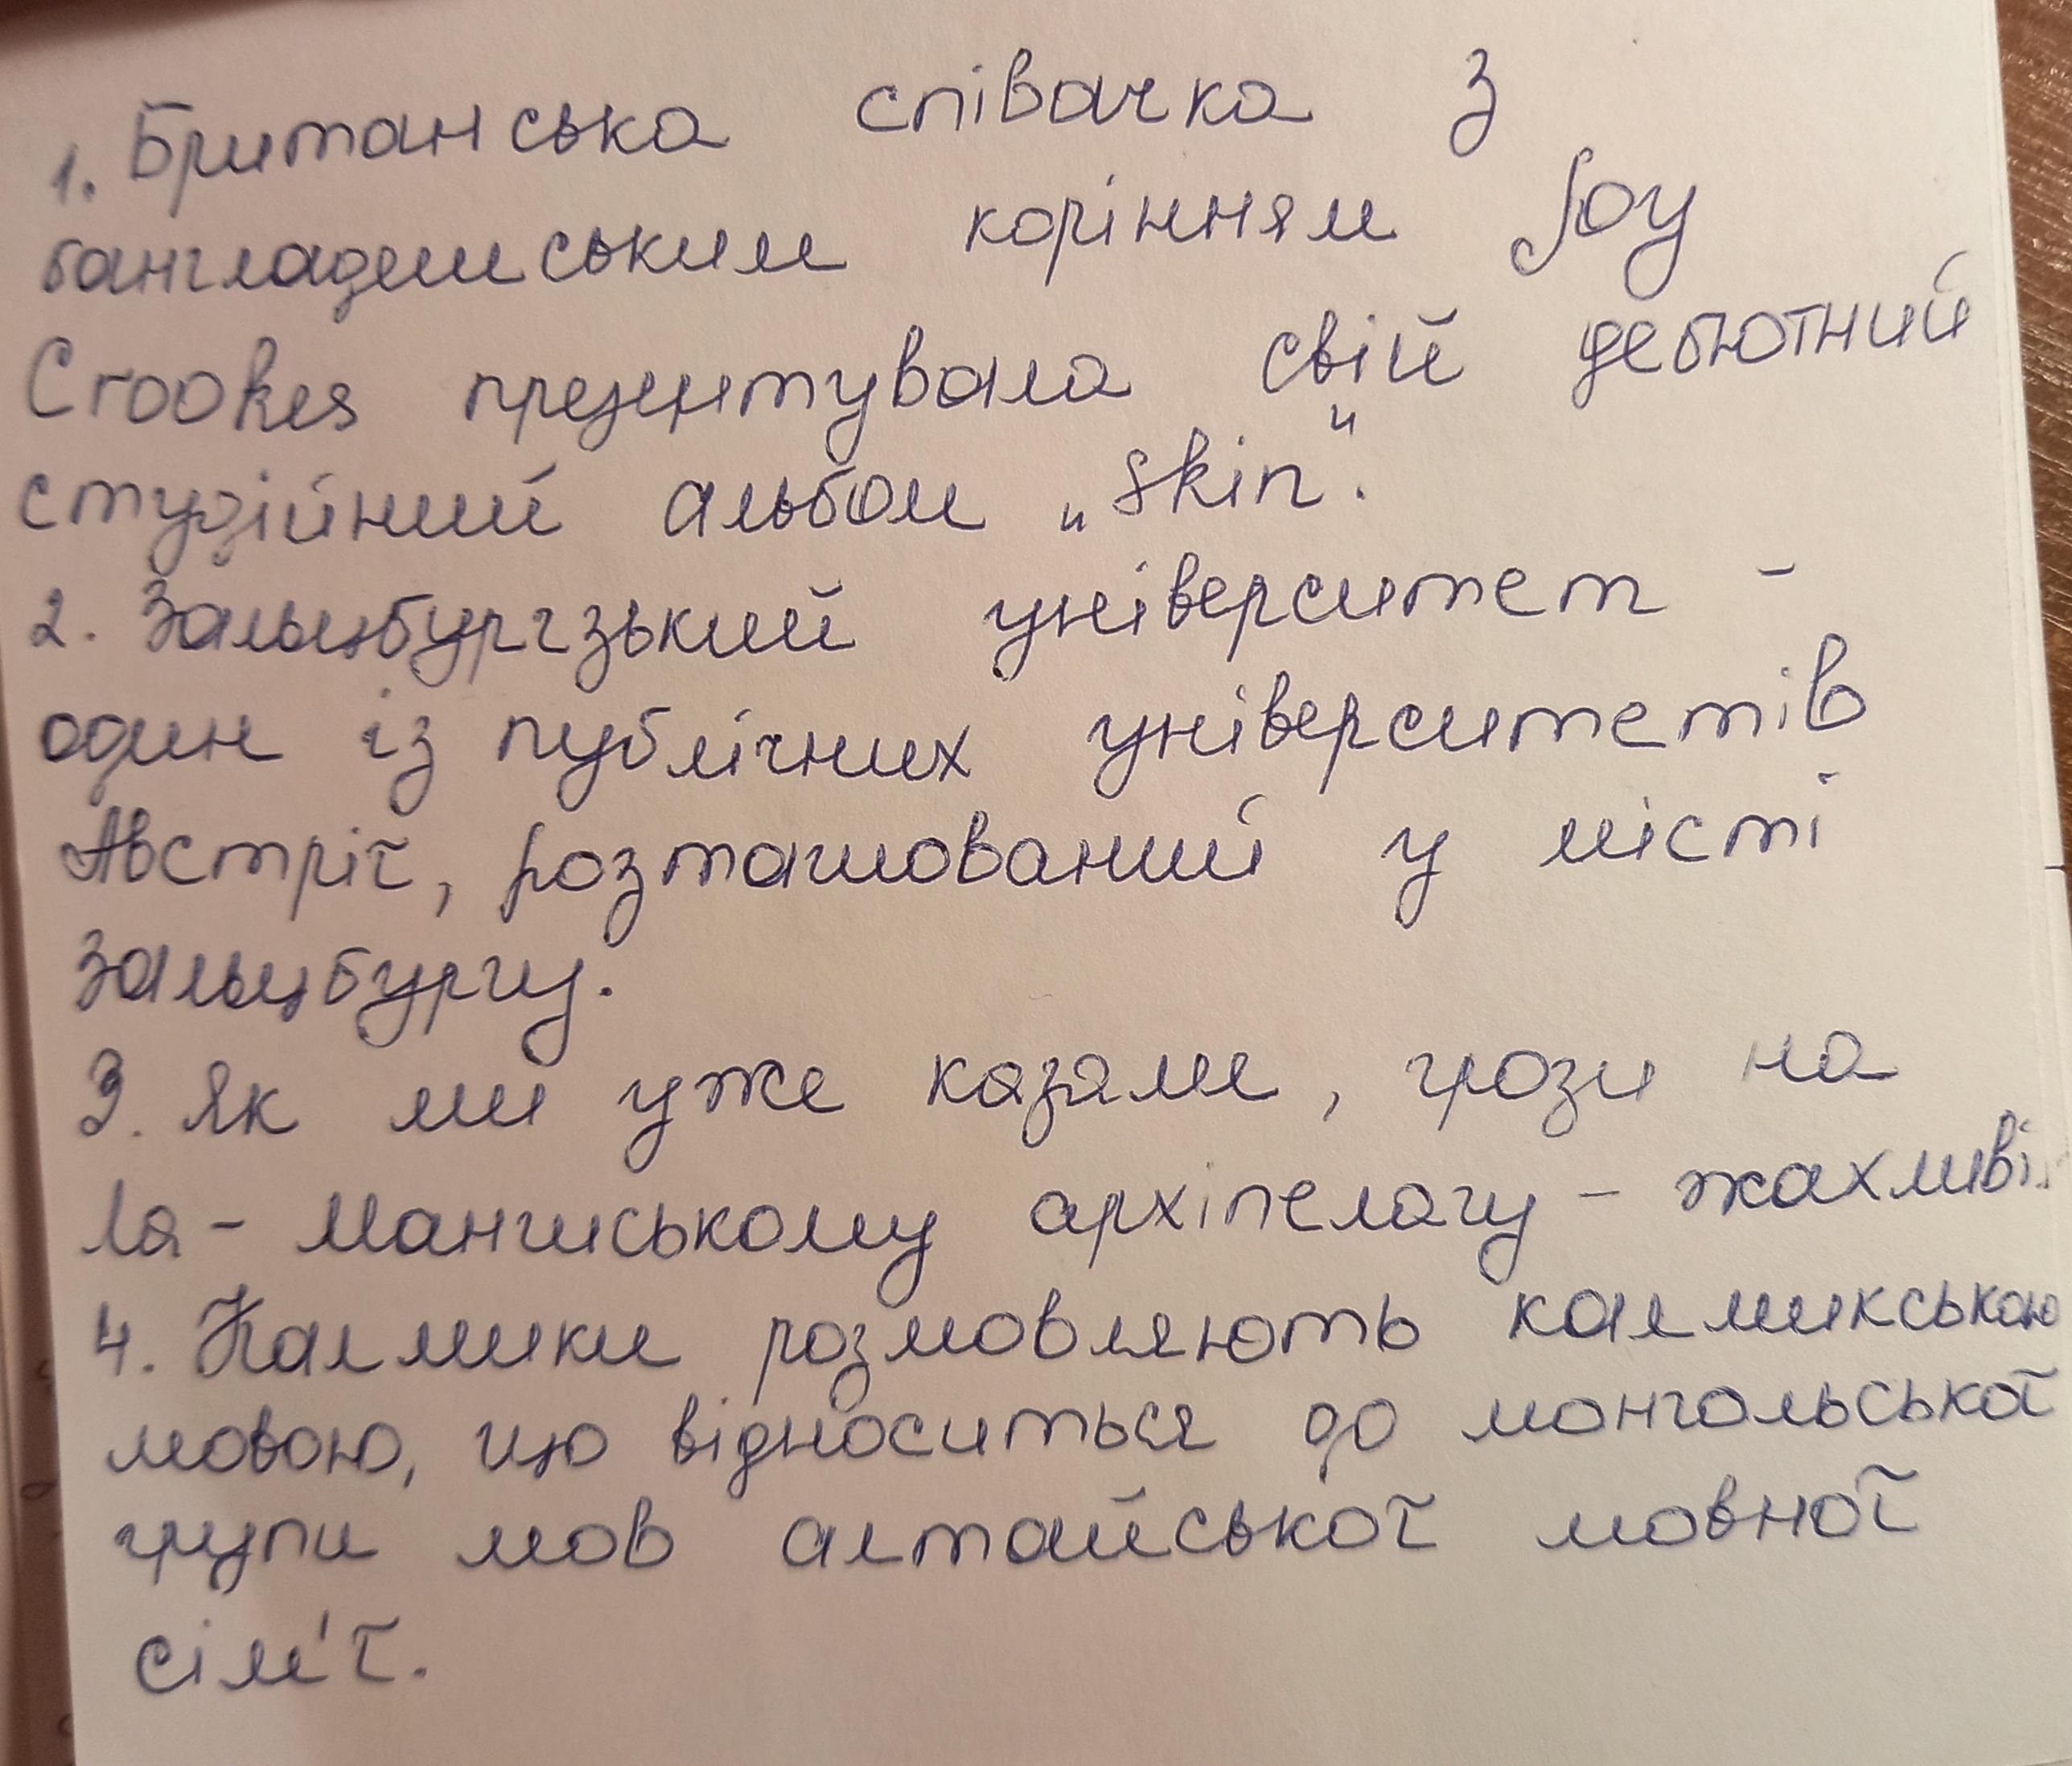 1. Британська співачка з
бангладешським корінням Joy
Crookes презентувала свій дебютний
студійний альбом „Skin".
2. Зальцбургзький університет -
один із публічних університетів
Австрії, розташований у місті
Зальцбургу.
3. Як ми уже казали, грози на
Ла - Маншському архіпелагу - жахливі.
4. Калмики розмовляють калмикською
мовою, що відноситься до монгольської
групи мов алтайської мовної
сім'ї.